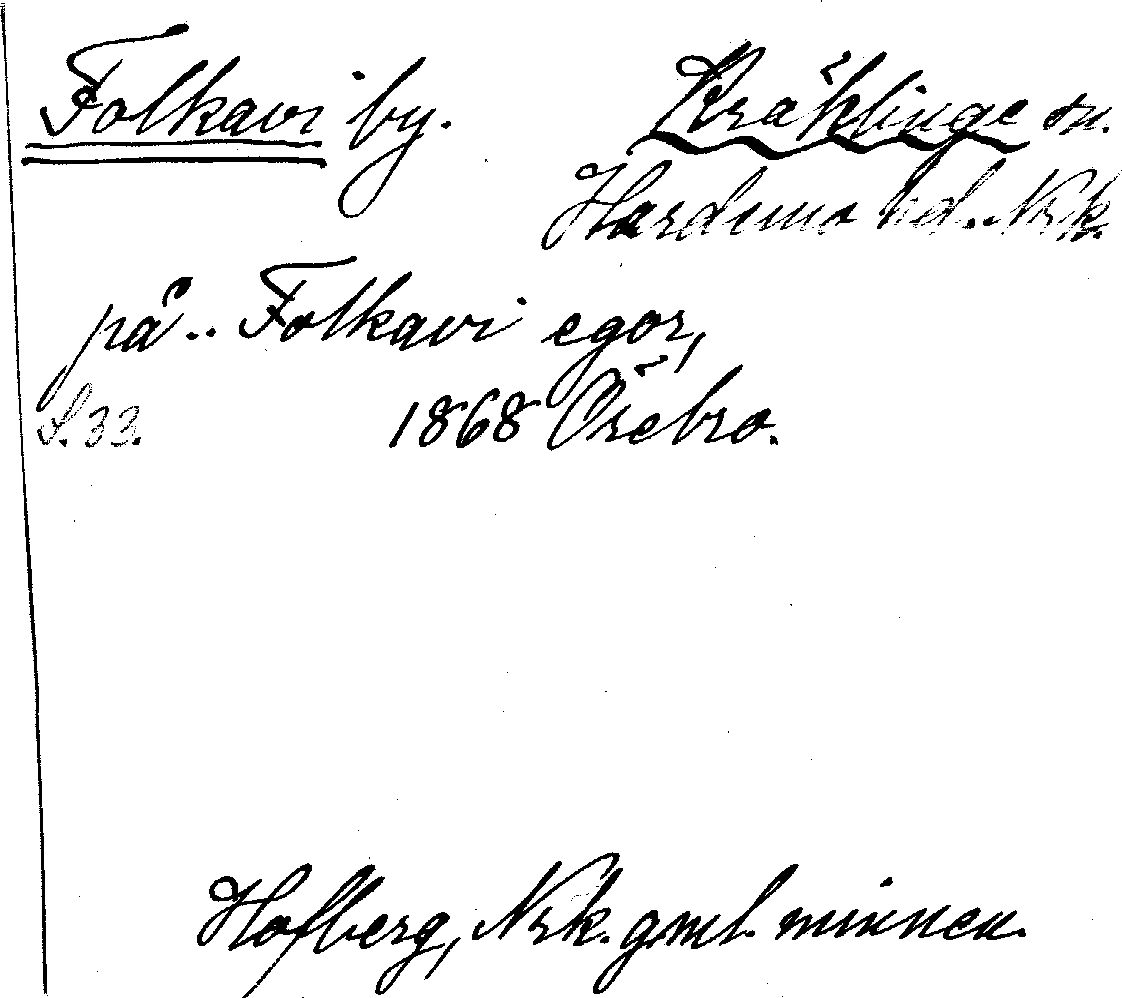 Folkavi by. Kräklinge sn.
Hardemo hd. Nrk.
på.. Folkavi egor,
S. 33. 1868 Örebro.
Hofberg, Nrk. gml. minnen.